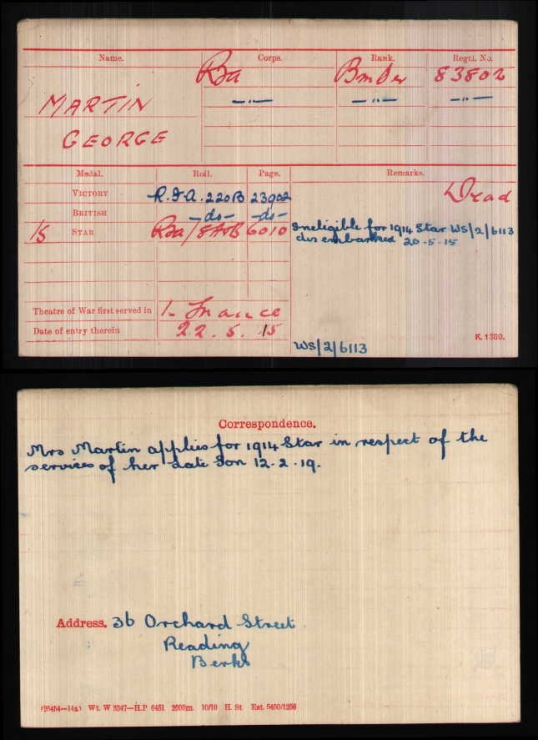 Name. Corps. Rank. Regtl. No.
RFA Bmbdr 83802
MARTIN —"— —"— —"—
GEORGE
Medal. Roll. Page. Remarks.
VICTORY R.F.A. 220B 23902 Dead
BRITISH —do— —do—
15 STAR RFA/8A&B 6010 Ineligible for 1914 Star WS/2/6113
disembarked 20-5-15
Theatre of War first served in 1. France
Date of entry therein 22.5.15 K. 1380.
WS/2/6113
Correspondence.
Mrs Martin applies for 1914 Star in respect of the
services of her late Son 12.2.19.
Address. 36 Orchard Street
Reading
Berks
Wt. W 5047—H.P 6451 10/19 H. St. Est.